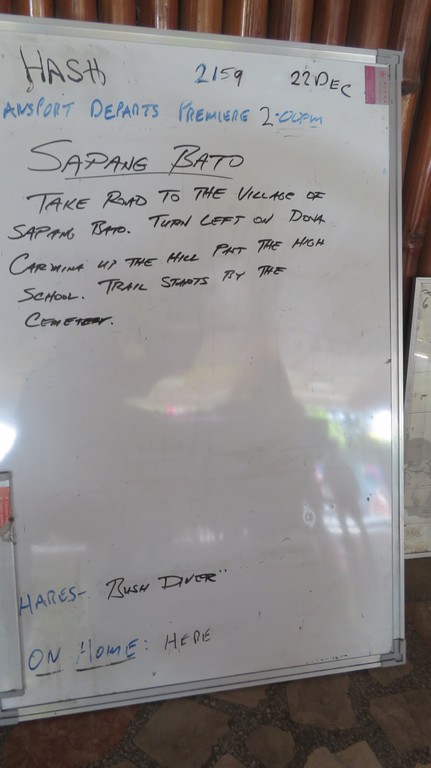 HASH 2159 22 DEC
ANSPORT DEPARTS PREMIERE 2:00pm
SAPANG BATO
TAKE ROAD TO THE VILLAGE OF
SAPANG BATO. TURN LEFT ON DONA
CARMINA UP THE HILL PAST THE HIGH
SCHOOL. TRAIL STARTS BY THE
CEMETERY.
HARES- BUSH DIVER"
ON HOME: HERE